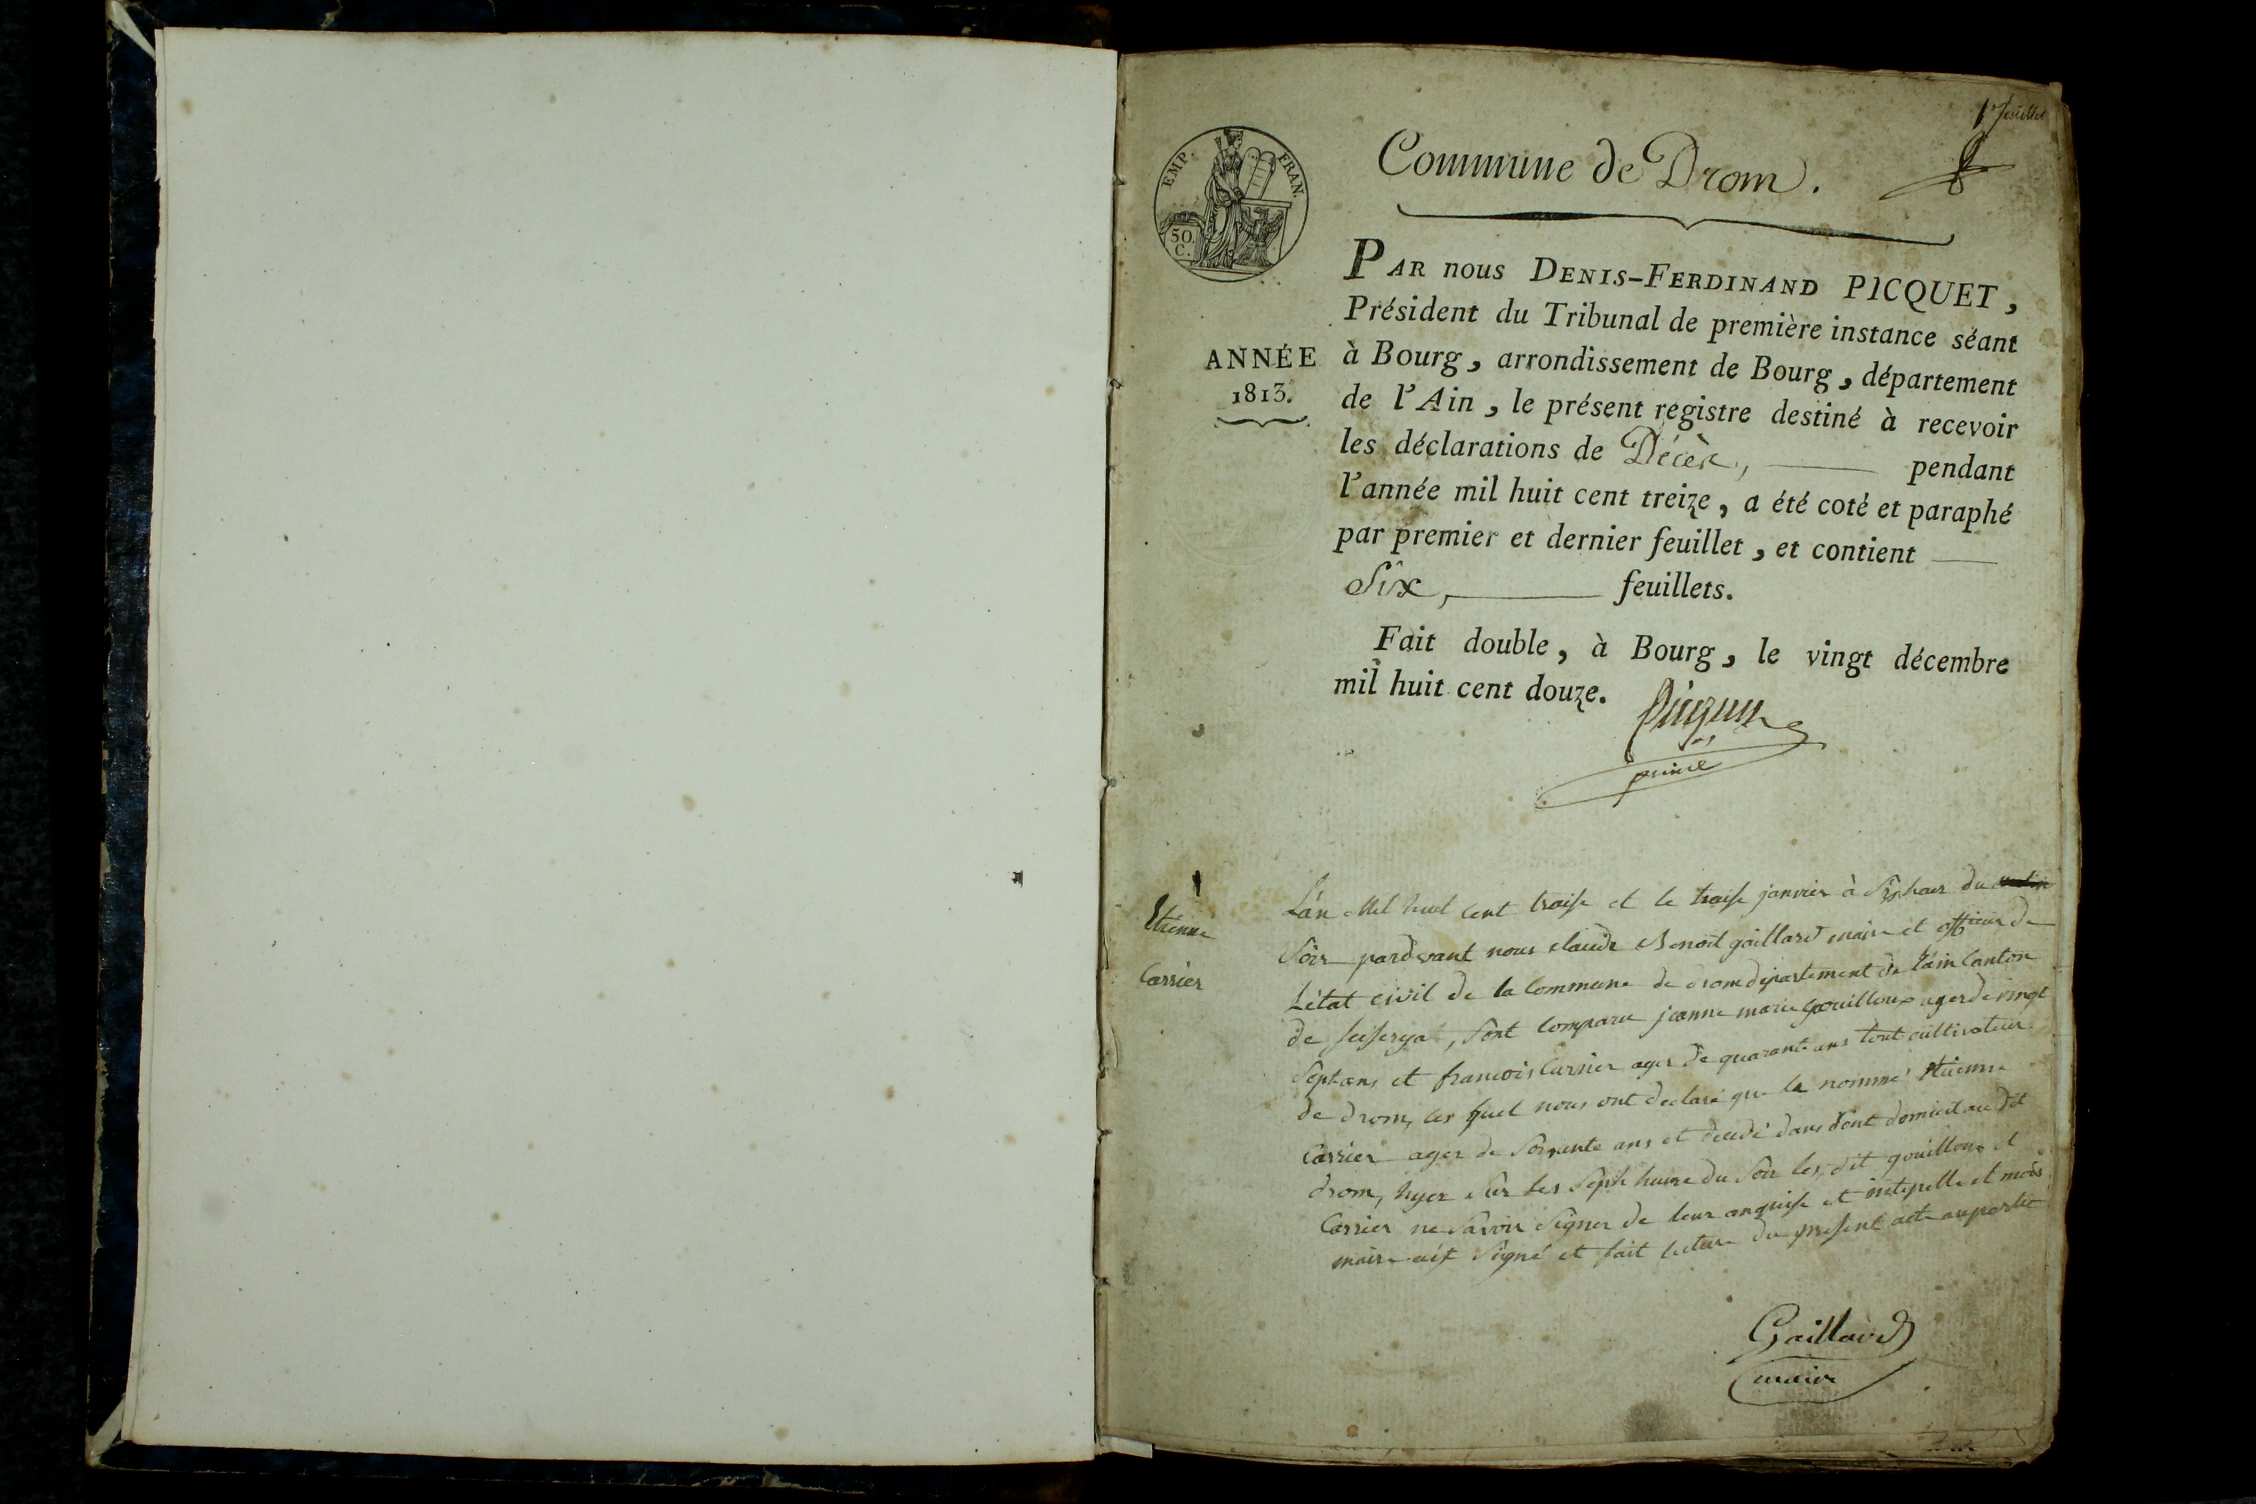 1er feuillet
Commune de Drom.
EMP. FRAN.
50.
C.
PAR nous DENIS-FERDINAND PICQUET,
Président du Tribunal de première instance séant
ANNÉE
1813.
à Bourg, arrondissement de Bourg, département
de l'Ain, le présent registre destiné à recevoir
les déclarations de Décès, pendant
l'année mil huit cent treize, a été coté et paraphé
par premier et dernier feuillet, et contient
Six, feuillets.
Fait double, à Bourg, le vingt décembre
mil huit cent douze.
Picquet
1
Etienne
Carrier
L'an Mil huit cent traise et le traise janvier à Six heur du
Soir pardevant nous claude Benoit gaillard maire et officier de
L'état civil de la Commune de drom département de l'ain Canton
de , Sont comparu jeanne marie gouilloux ager de vingt
Sept ans et francois Carrier ager de quarante ans tout cultivateur
de drom, les quel nous ont declaré que le nommé Etienne
Carrier ager de Soixente ans et decedé dans dont domicil au dit
drom, hyer Sur les Sept heure du Soir les dit gouilloux et
Carrier ne Savoir Signer de leur enquise et et mois
maire Signé et fait lecture du present acte au partie
Gaillard
maire